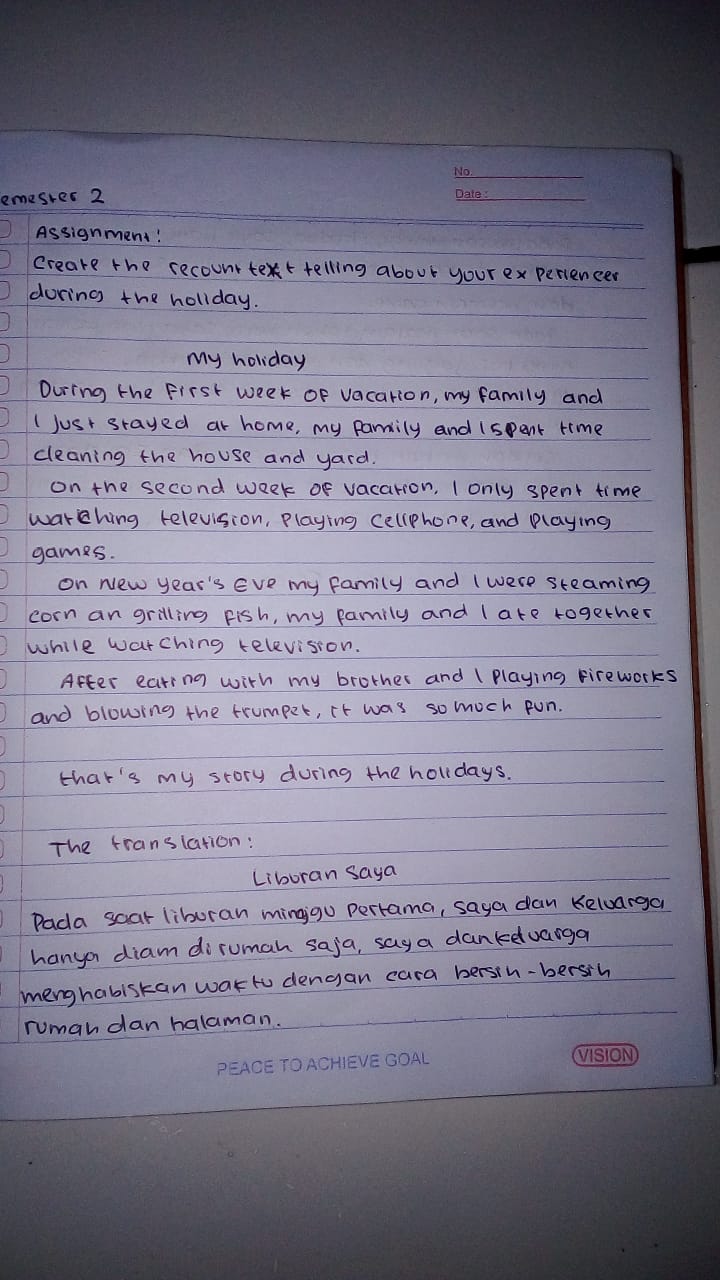 No.
Date:
emester 2
Assignment!
Create the recount text telling about your experiencer
during the holiday.
My holiday
During the first week of vacation, my family and
I just stayed at home, my family and I spent time
cleaning the house and yard.
On the second week of vacation, I only spent time
watching television, playing cellphone, and playing
games.
On New Year's Eve my family and I were steaming
corn an grilling fish, my family and I ate together
while watching television.
After eating with my brother and I playing fireworks
and blowing the trumpet, it was so much fun.
that's my story during the holidays.
The translation:
Liburan Saya
Pada saat liburan minggu pertama, saya dan keluarga
hanya diam di rumah saja, saya dan keluarga
menghabiskan waktu dengan cara bersih-bersih
rumah dan halaman.
PEACE TO ACHIEVE GOAL
VISION